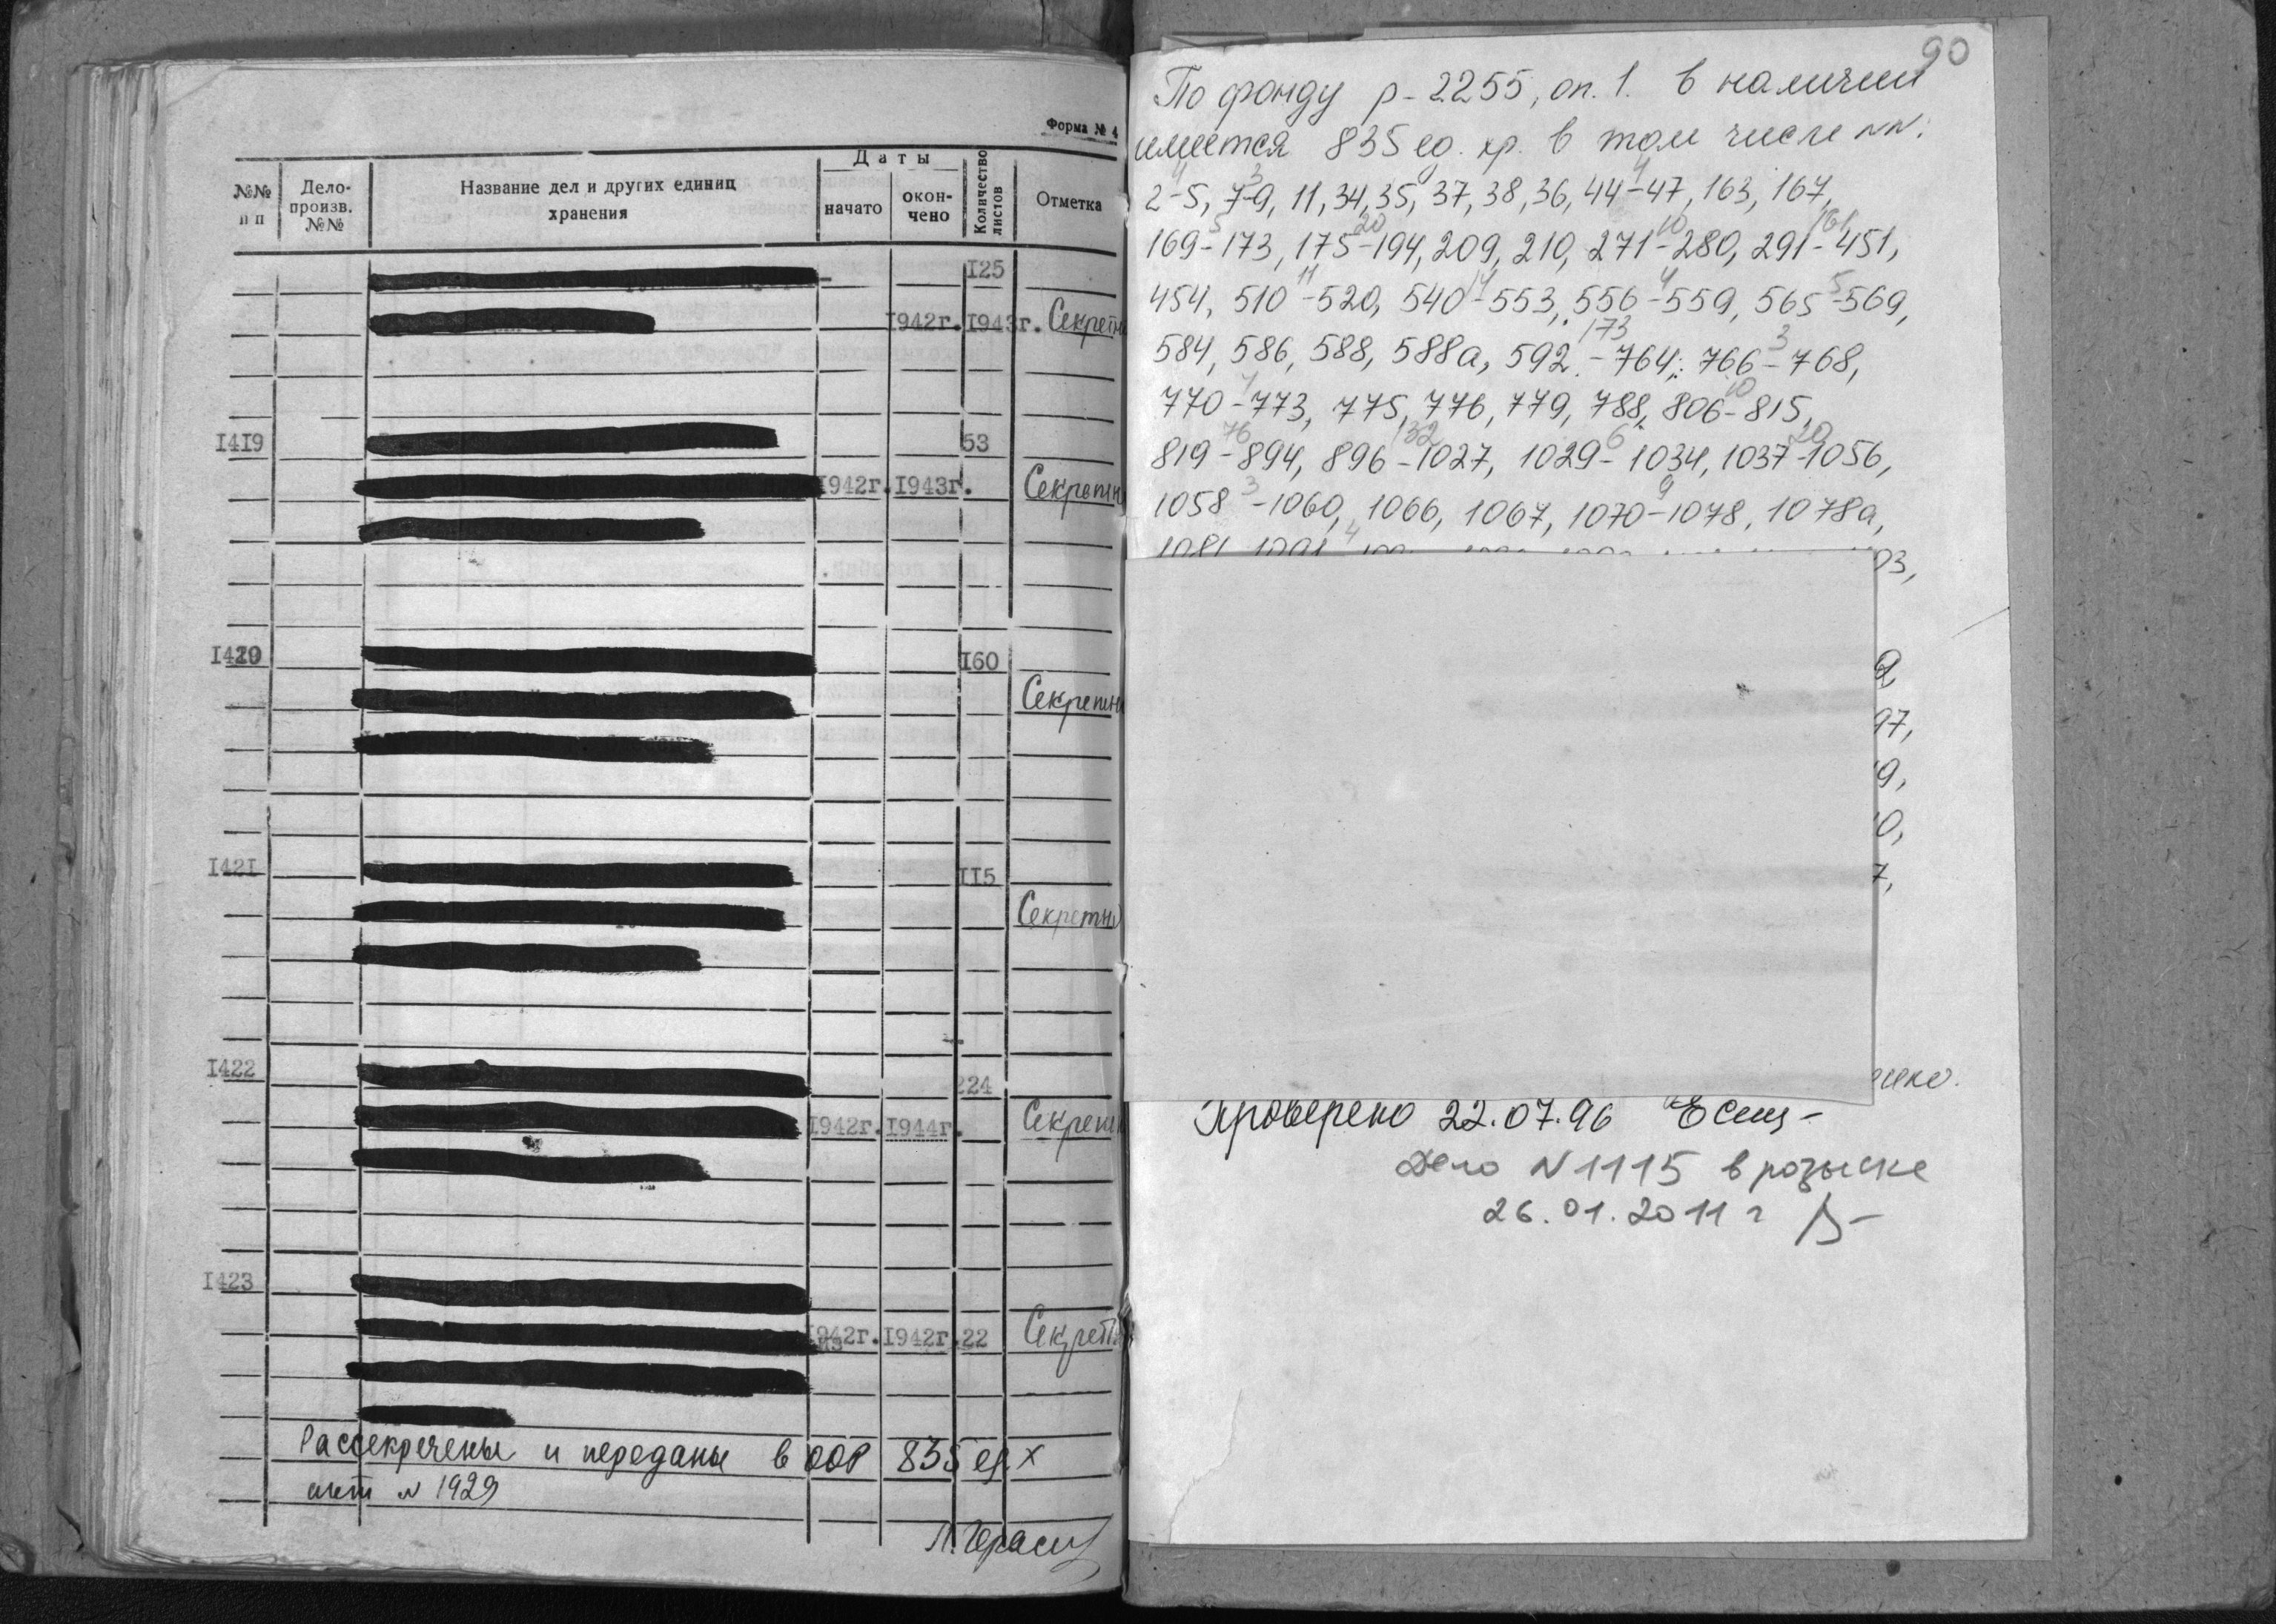 Форма № 4
№№ п п
Дело-произв. №№
Название дел и других единиц хранения
Даты
начато
окон-чено
Количество листов
Отметка
125
1942г. 1943г. Секретн
1419 53
1942г. 1943г. Секретн
1420 160
Секретн
1421 115
Секретно
1422 224
1942г. 1944г. Секретн
1423
1942г. 1942г. 22 Секретн
Рассекречены и переданы в ООФ 835 ед. х
акт № 1929
90
По фонду р-2255, оп. 1. в наличии
имеется 835 ед. хр. в том числе NN:
4 3 9 4
2-5, 7-9, 11, 34, 35, 37, 38, 36, 44-47, 163, 167,
5 20 10 161
169-173, 175-194, 209, 210, 271-280, 291-451,
11 14 4 5
454, 510-520, 540-553, 556-559, 565-569,
173 3
584, 586, 588, 588а, 592-764; 766-768,
4 10
770-773, 775, 776, 779, 788, 806-815,
76 132 6 20
819-894, 896-1027, 1029-1034, 1037-1056,
3 9
1058-1060, 1066, 1067, 1070-1078, 1078а,
4
03,
97,
9,
0,
7,
Проверено 22.07.96
Дело N 1115 в розыске
26.01.2011 г